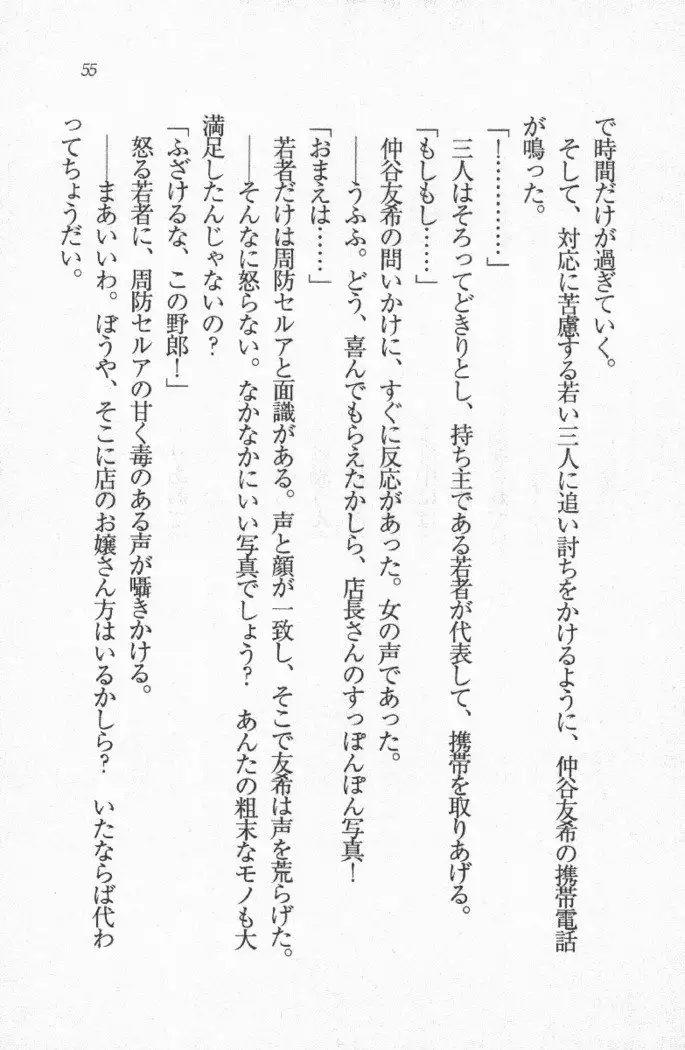 55
で時間だけが過ぎていく。
そして、対応に苦慮する若い三人に追い討ちをかけるように、仲谷友希の携帯電話
が鳴った。
「！…………」
三人はそろってどきりとし、持ち主である若者が代表して、携帯を取りあげる。
「もしもし……」
仲谷友希の問いかけに、すぐに反応があった。女の声であった。
――うふふ。どう、喜んでもらえたかしら、店長さんのすっぽんぽん写真！
「おまえは……」
若者だけは周防セルアと面識がある。声と顔が一致し、そこで友希は声を荒らげた。
――そんなに怒らない。なかなかにいい写真でしょう？　あんたの粗末なモノも大
満足したんじゃないの？
「ふざけるな、この野郎！」
怒る若者に、周防セルアの甘く毒のある声が囁きかける。
――まあいいわ。ぼうや、そこに店のお嬢さん方はいるかしら？　いたならば代わ
ってちょうだい。